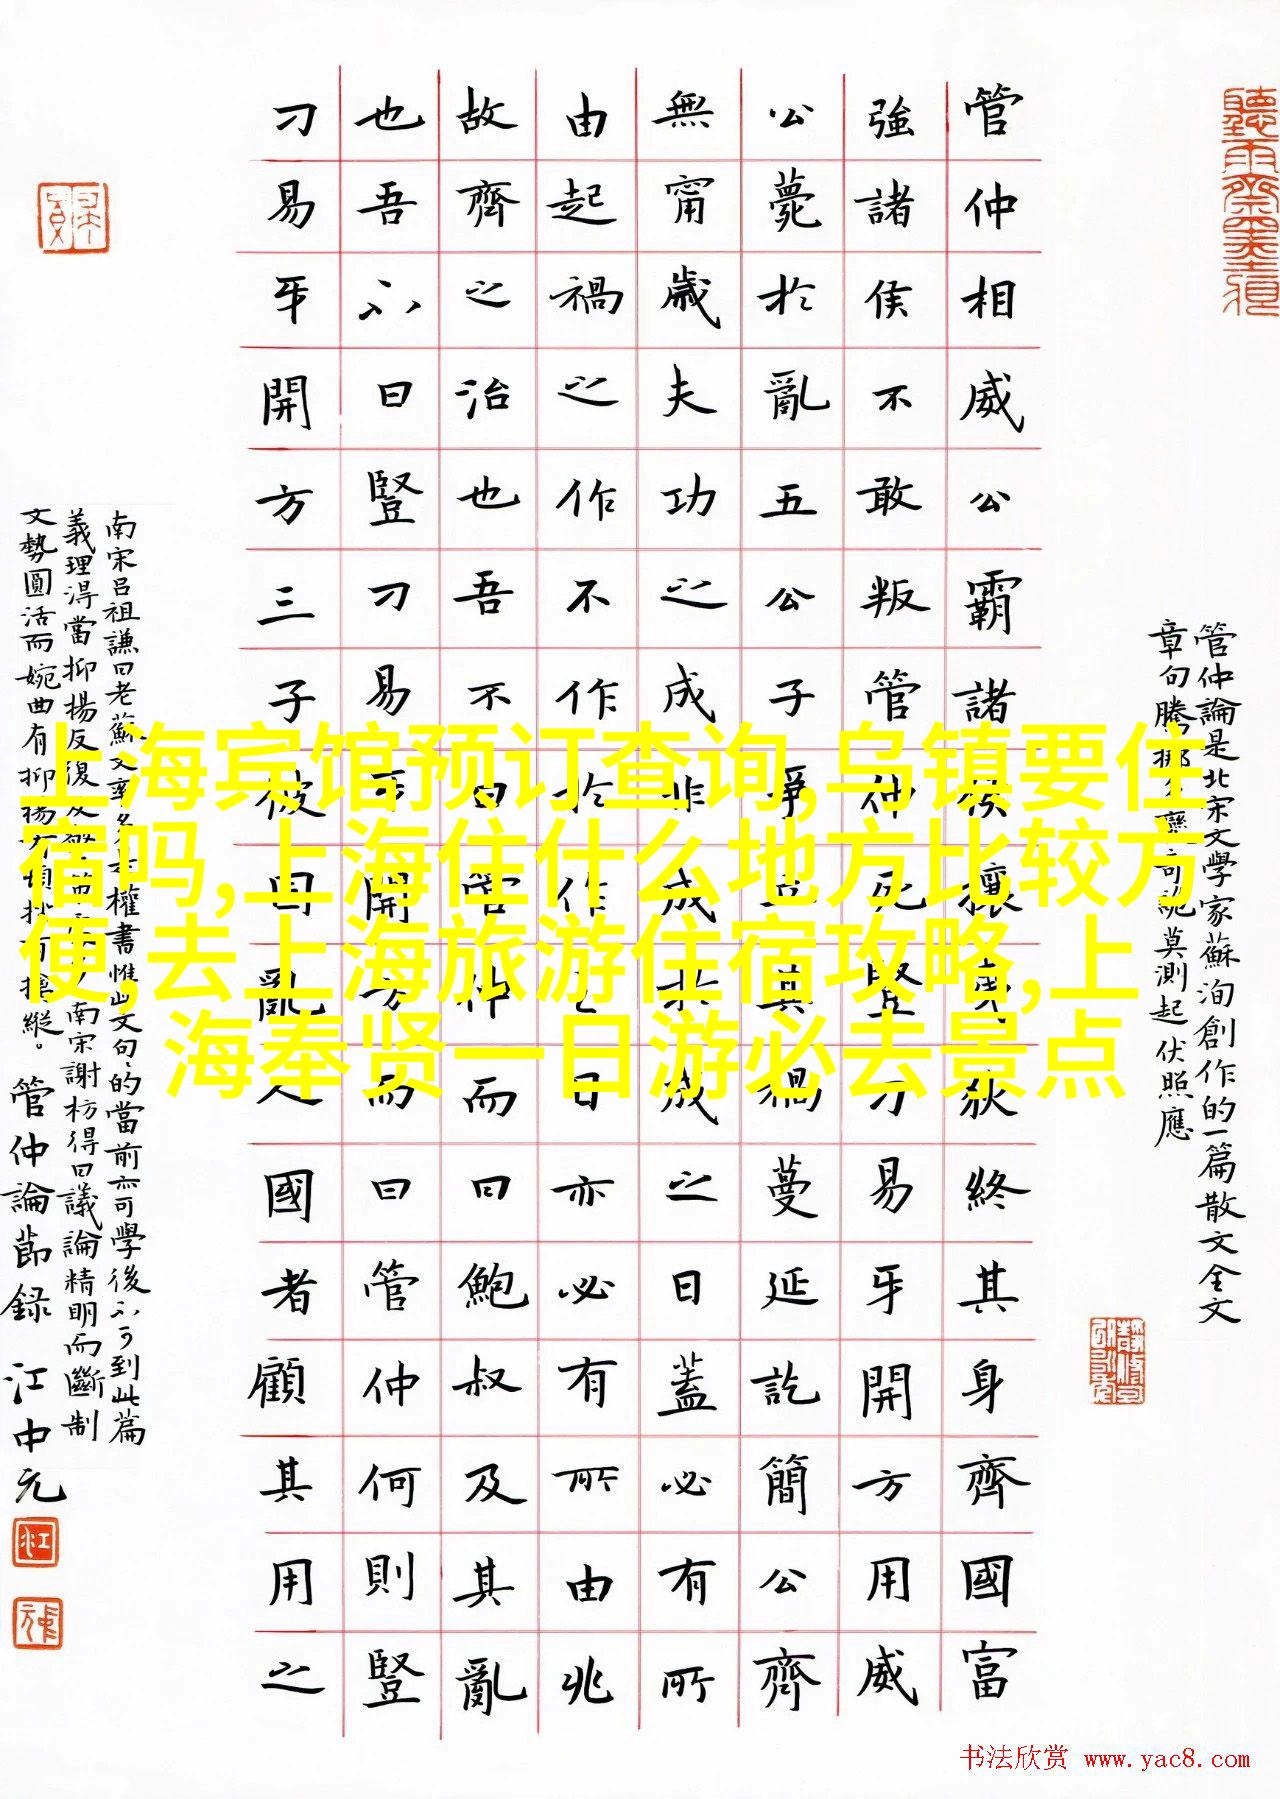 管仲論是北宋文學家蘇洵創作的一篇散文全文
章句騰挪多變奇詭莫測起伏照應
管仲相威公霸諸侯攘夷狄終其身齊國富
強諸侯不敢叛管仲死豎刁易牙開方用威
公薨於亂五公子爭立其禍蔓延訖簡公齊
無甯歲夫功之成非成於成之日蓋必有所
由起禍之作不作於作之日亦必有所由兆
故齊之治也吾不曰管仲而曰鮑叔及其亂
也吾不曰豎刁易牙開方而曰管仲何則豎
刁易牙開方三子彼固亂人國者顧其用之
南宋呂祖謙曰老蘇文率多本權書惟此文句句的當前亦可學後不可到此篇
義理淂當抑揚反復及警策處多南宋謝枋得曰議論精明而斷制
文勢圓活而婉曲有抑揚有頓挫有擒縱。管仲論節録 江中元
上海宾馆预订查询,乌镇要住
宿吗,上海住什么地方比较方
便,去上海旅游住宿攻略,上
海奉贤一日游必去景点
书法欣赏 www.yac8.com